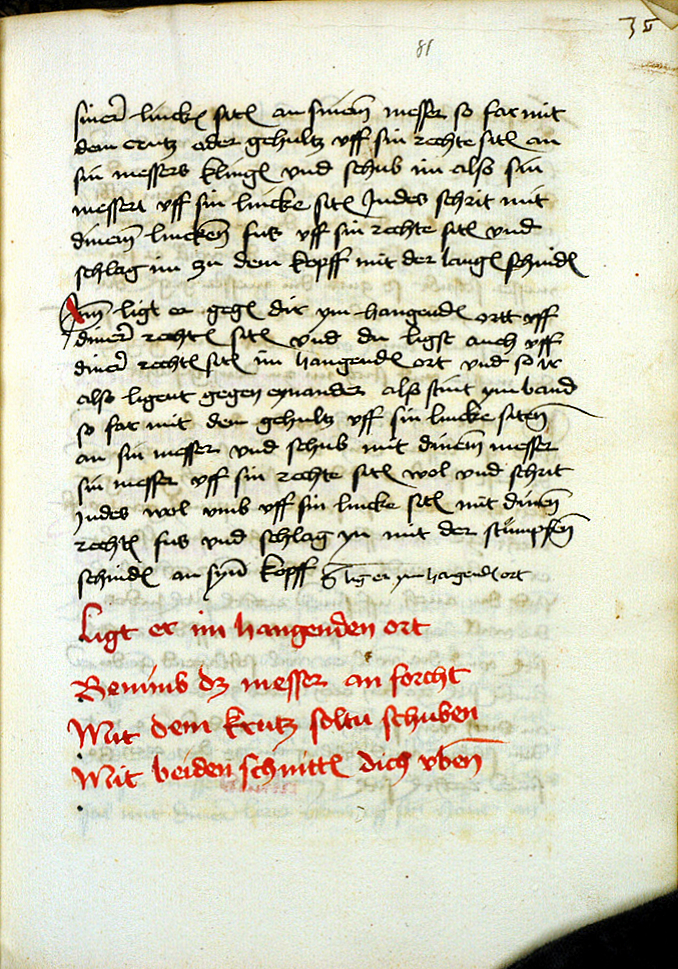 35
81
siner lincken siten an sinem messer so far mit
dem crutz oder gehultz vff sin rechte siten an
sin messers klingen vnd schub im also sin
messer vff sin lincke siten Indes schrit mit
dinem lincken fus vff sin rechte siten vnd
schlag im zu dem kopff mit der langen schniden
Itm ligt er gegen dir ym hangenden ortt vff
diner rechten siten vnd du ligst auch vff
diner rechten siten im hangenden ort vnd so ir
also ligent gegen eynander also stint ym band
so far mit dem gehultz vff sin lincke siten
an sin messer vnd schub mit dinem messer
sin messer vff sin rechte siten wol vnd schrit
Indes wol vmb vff sin lincke siten mit dinem
rechten fus vnd schlag yn mit der stumpffen
schniden an synen kopff ligt er ym hangenden ort
Ligt er im hangenden ort
Benimb dz messer an forcht
Mit dem krutz soltu schuben
Mit beiden schnitten dich vben